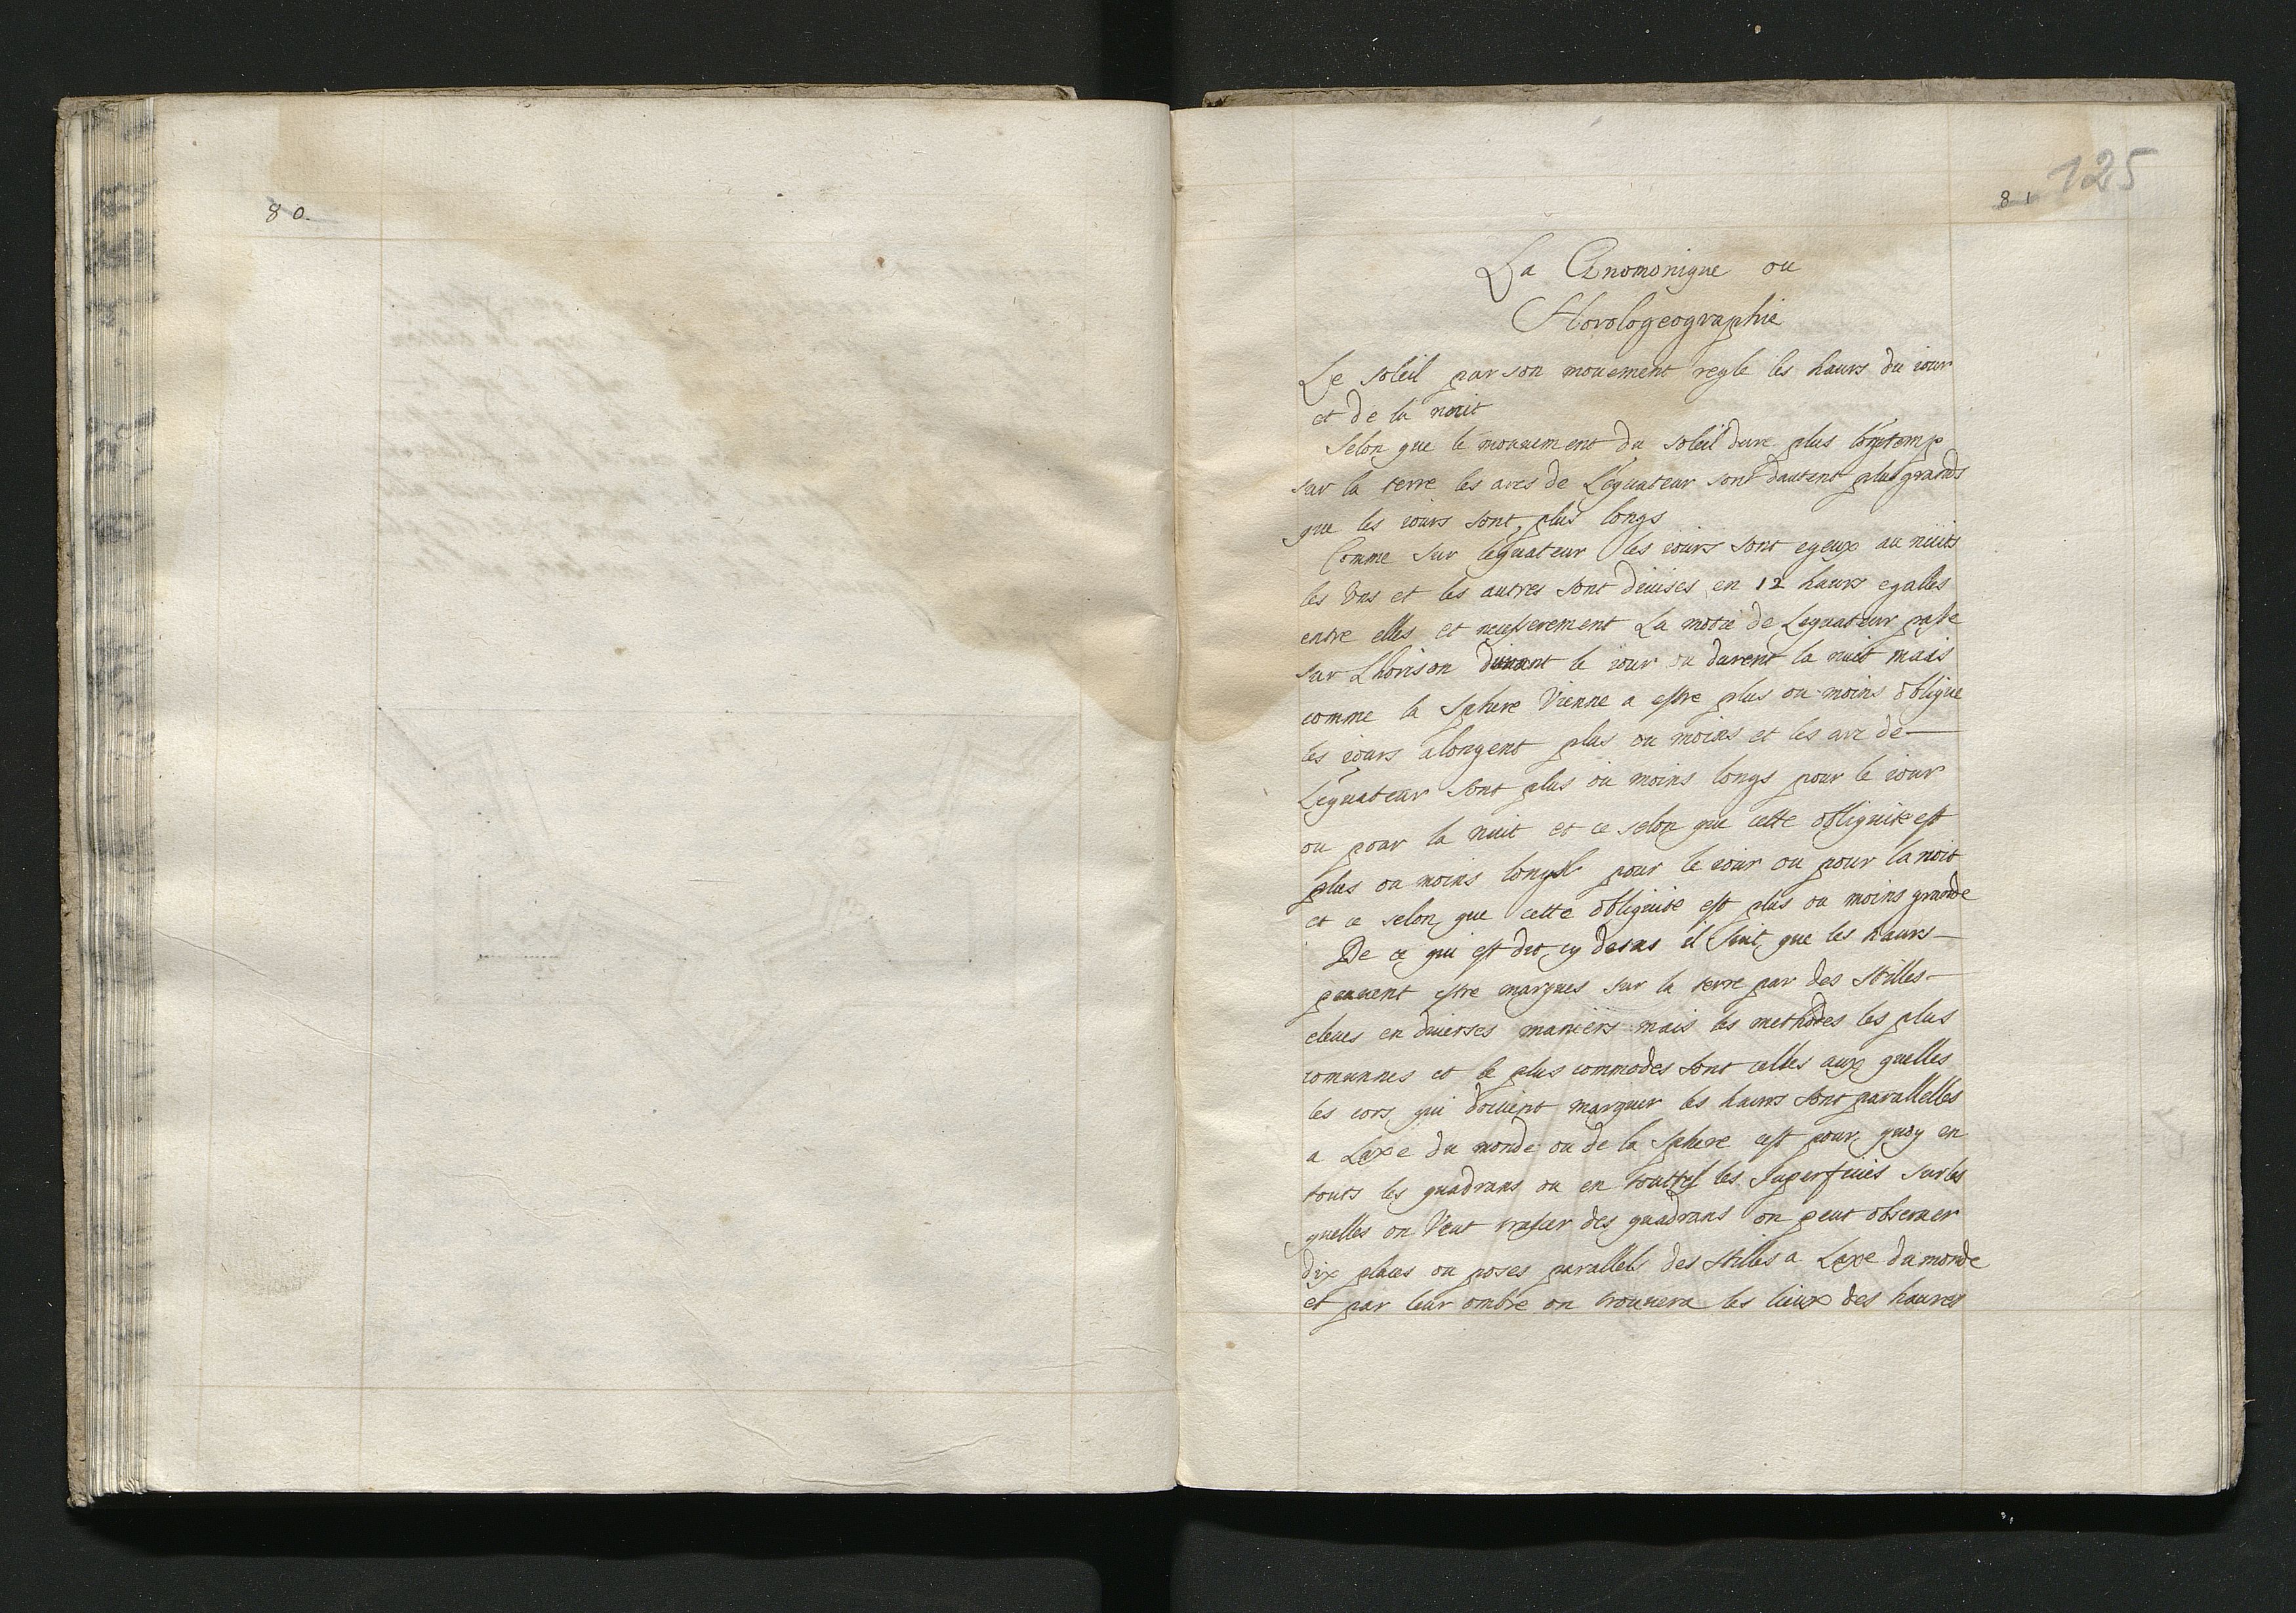 80.
81
125
La Gnomonique ou
Horologeographie
Le soleil par son mouement regle les haurs du iour
et de la nuit
Selon que le mouuement du soleil dure plus longtemp
sur la terre les arcs de L'equateur sont dautent plus grands
que les iours sont plus longs
Comme sur lequateur les iours sont egeux au nuits
les Uns et les autres sont diuises en 12 haurs egalles
entre elles et necesserement La motie de Lequateur passe
sur Lhorison durant le iour ou durent la nuit mais
comme la Sphere Vienne a estre plus ou moins oblique
les iours alongent plus ou moins et les arc de
L'equateur sont plus ou moins longs pour le iour
ou pour la nuit et ce selon que cette obliquite est
plus ou moins longs pour le iour ou pour la noit
et ce selon que cette obliquite est plus ou moins grande
De ce qui est dit cy desus il suit que les haurs
peuuent estre marques sur la terre par des stilles
eleues en diuerses maniers mais les methodes les plus
comunnes et le plus commodes sont celles aux quelles
les cors qui doiuent marquer les haurs sont parallelles
a Laxe du monde ou de la sphere cest pour quoy en
touts les quadrans ou en touttes les superficies sur les
quelles on Veut trasser des quadrans on peut obseruer
dix places ou poses parallels des stilles a Laxe du monde
et par leur ombre on trouuera les lieux des haures